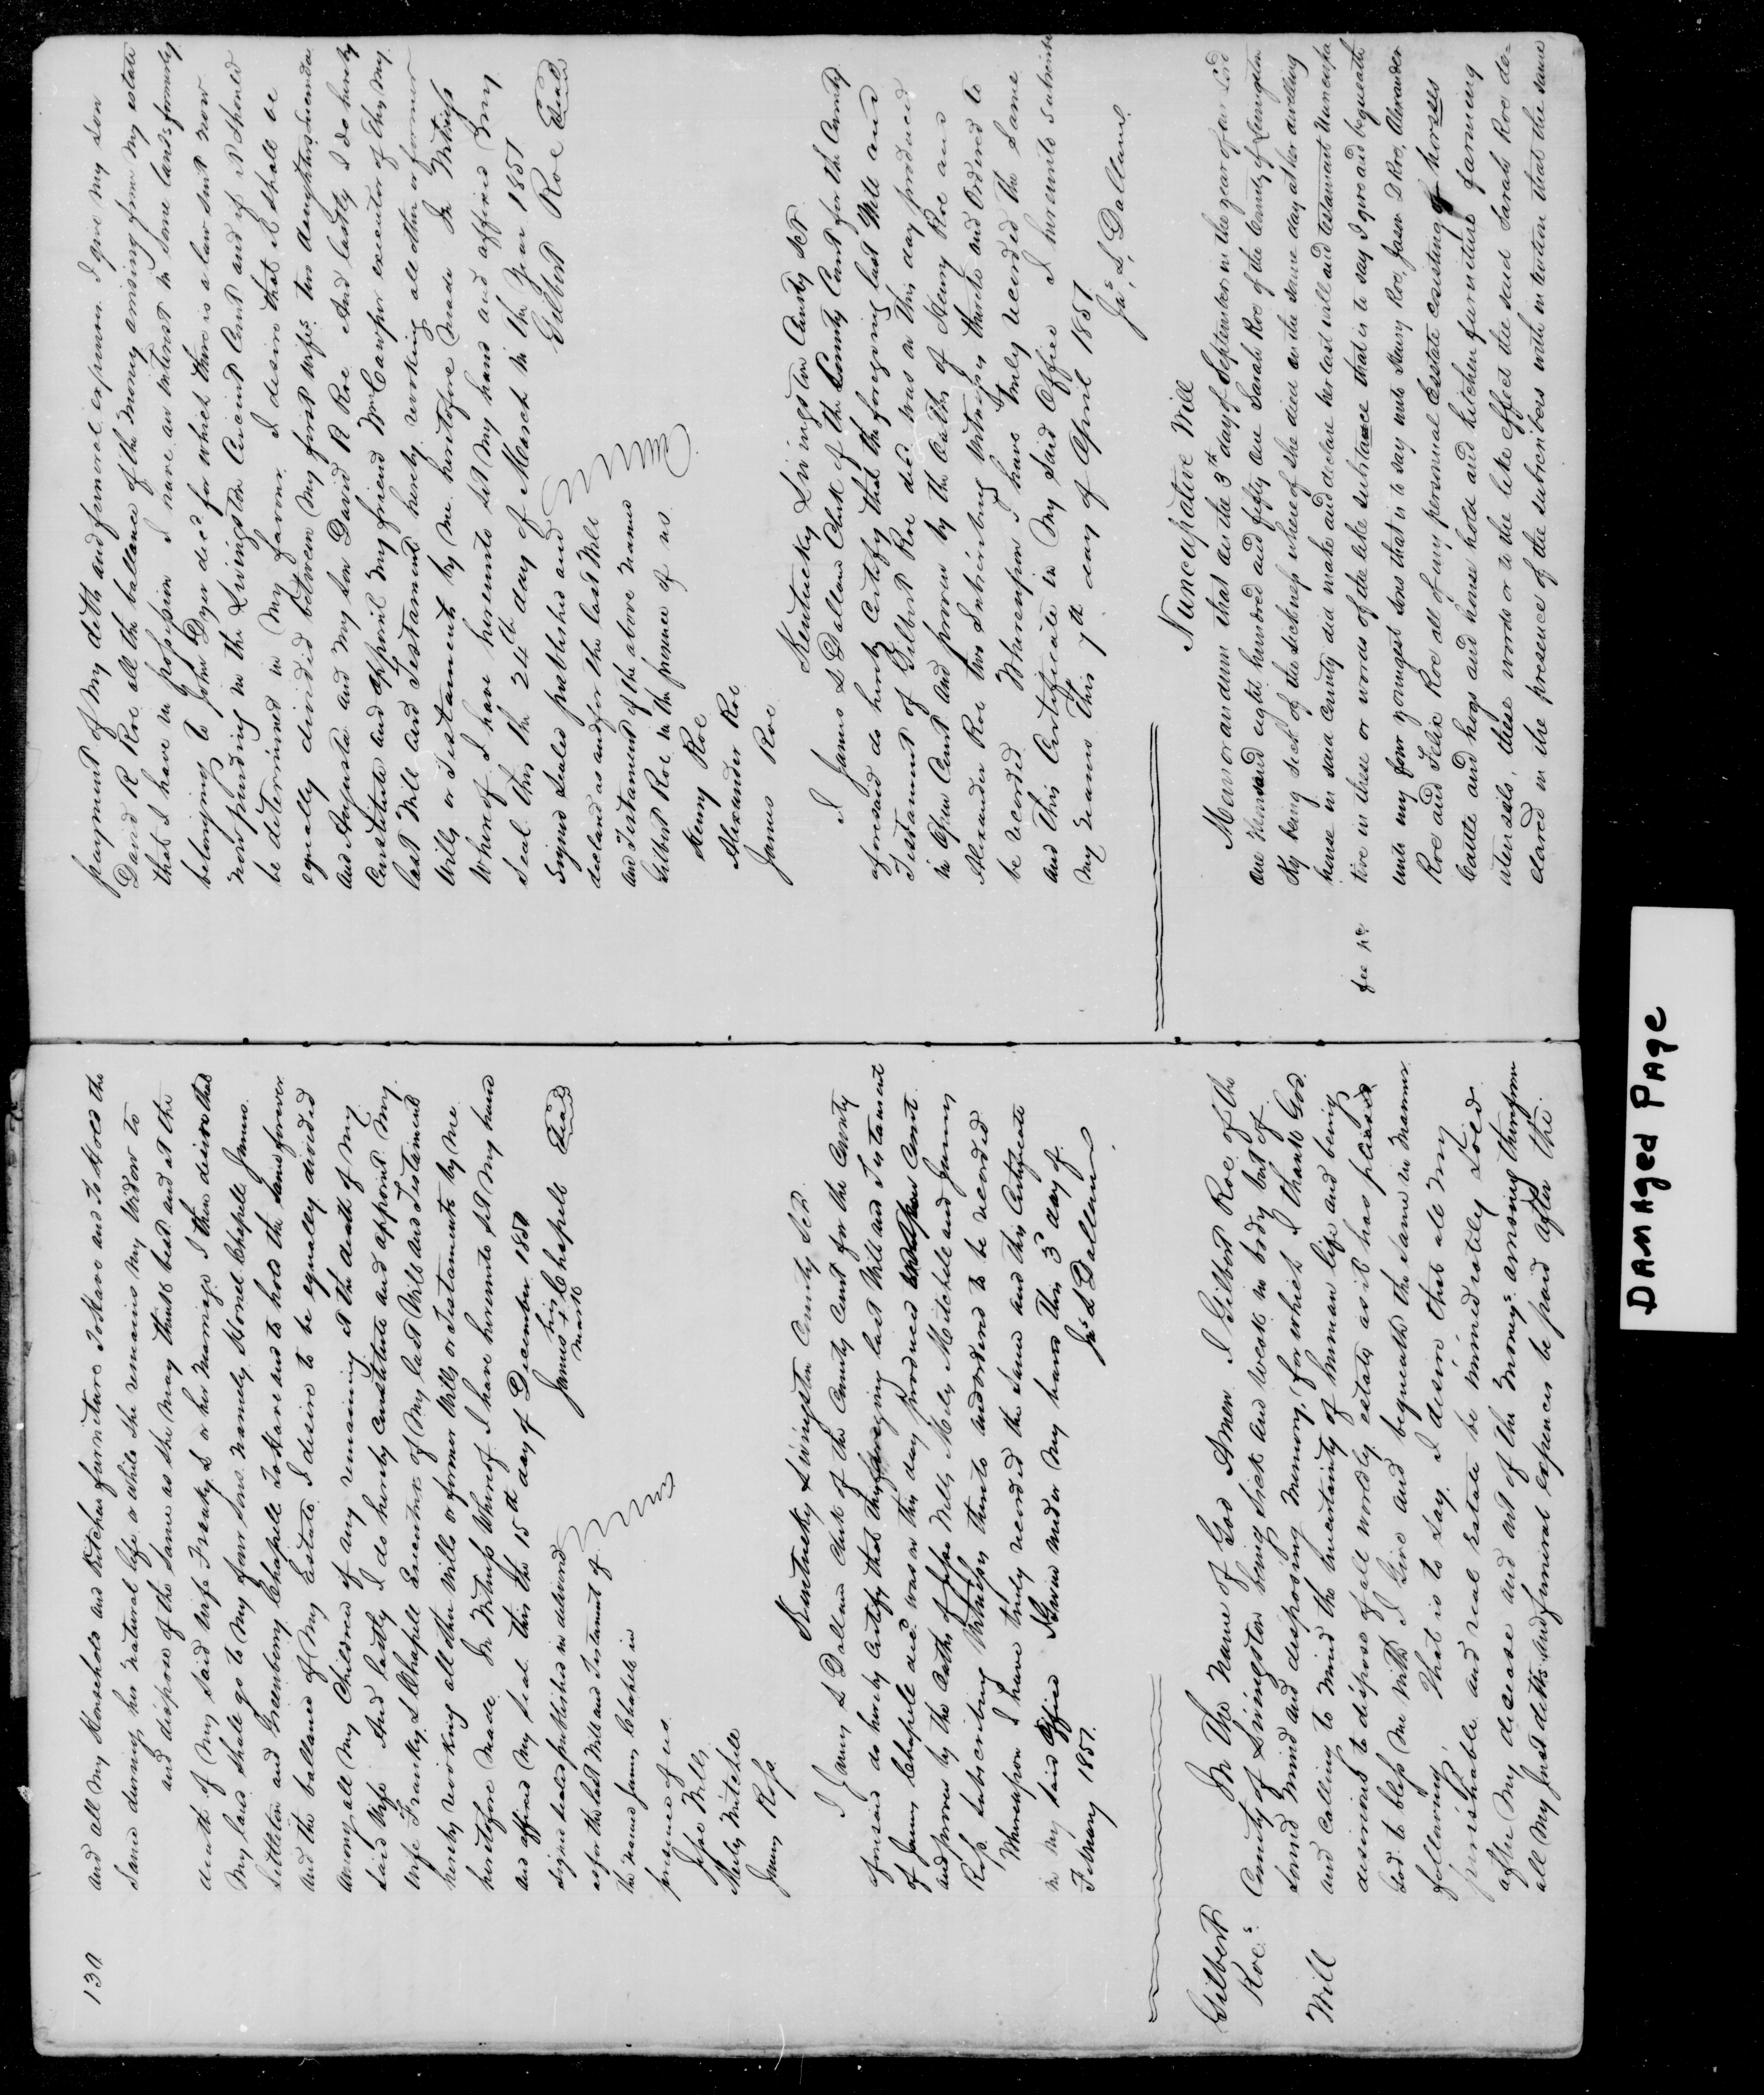 130
and all my Household and Kitchen furniture To Have and To Hold the
Same during her natural life or while she remains my Widow to
and dispose of the same as she may think best and at the
death of my said Wife Franky L or her Marriage I then desire that
my land shall go to my four sons namely Hornel Chapell James
Littleton and Greenberry Chapell To Have and to hold the same forever
and the ballance of my Estate I desire to be equally divided
among all my Children if any remaining at the death of my
said Wife And lastly I do hereby Constitute and appoint my
Wife Franky L Chapell Executrix of my last Will and Testament
hereby revoking all other Wills or former Wills or Testaments by me
heretofore made In Witness Whereof I have hereunto set my hand
and affixed my seal this the 15th day of December 1850
Signed sealed published in delivered
as for the last Will and Testament of
the named James Chapell in
presence of us
his
James + Chapell Seal
mark
Jesse Mills
Mily Mitchell
James Ross
Kentucky Livingston County Sct
I James L Dallam Clerk of the County Court for the County
aforesaid do hereby Certify that the foregoing last Will and Testament
of James Chapell decd was on this day produced in Open Court
and proven by the Oaths of Jesse Mills Mily Mitchell and James
Ross subscribing Witness thereto and ordered to be recorded
Whereupon I have truly recorded the same and this Certificate
in my said Office Given under my hand this 3d day of
February 1851.
Jas L Dallam
Gilbert
Roe's
Will
In The Name of God Amen I Gilbert Roe of the
County of Livingston being sick and weak in body but of
sound mind and disposing Memory, for which I thank God.
and Calling to Mind the uncertainty of human life and being
desirous to dispose of all worldly estate as it has pleased
God to bless me with I Give and bequeath the same in manner
following, That is to say. I desire that all my
perishable and real estate be immediately sold
after my decease and out of the moneys arising therefrom
all my just debts and funeral expences be paid after the
payment of my debts and funeral expences I give my son
David R Roe all the ballance of the money arising from my estate
that I have in possession I have an interest in some lands formerly
belonging to John Dyer decd for which there is a law suit now
now pending in the Livingston Circuit Court and if it should
be determined in my favour I desire that it shall be
equally divided between my first wifes two daughters
and Augusta and my son David R Roe And lastly I do hereby
Constitute and appoint my friend Wm Cawper executor of this my
last Will and Testament hereby revoking all other or former
Wills or Testaments by me heretofore made In Witness
Whereof I have hereunto set my hand and affixed my
Seal this the 24th day of March in the year 1851
Gilbert Roe Seal
Signed Sealed published and
declared as and for the last Will
and Testament of the above named
Gilbert Roe in the presence of us
Henry Roe
Alexander Roe
James Roe
Kentucky Livingston County Sct
I James L Dallam Clerk of the County Court for the County
aforesaid do hereby Certify that the foregoing last Will and
Testament of Gilbert Roe decd was on this day produced
in Open Court and proven by the Oaths of Henry Roe and
Alexander Roe two Subscribing Witnesses thereto and Ordered to
be recorded Whereupon I have truly recorded the same
and this Certificate in my said Office I hereunto Subscribe
my name This 7th day of April 1851
Jas L Dallam
Nuncupative Will
Memorandum that on the 3rd day of September in the year of our Lord
one thousand eight hundred and fifty one Sarah Roe of the County of Livingston
Ky being sick of the sickness whereof she died on the same day at her dwelling
house in said County did make and declare her last will and testament Nuncupa
tive in these or words of the like substance that is to say I give and bequeath
unto my four youngest sons that is to say unto Henry Roe, Jason D Roe, Alexander
Roe and Felix Roe all of my personal Esstate consisting of horses
Cattle and hogs and house hold and kitchen furniture farming
utensils, these words or to the like effect the said Sarah Roe de-
clared in the presence of the subscribers with intention that the same
DAMAged PAge